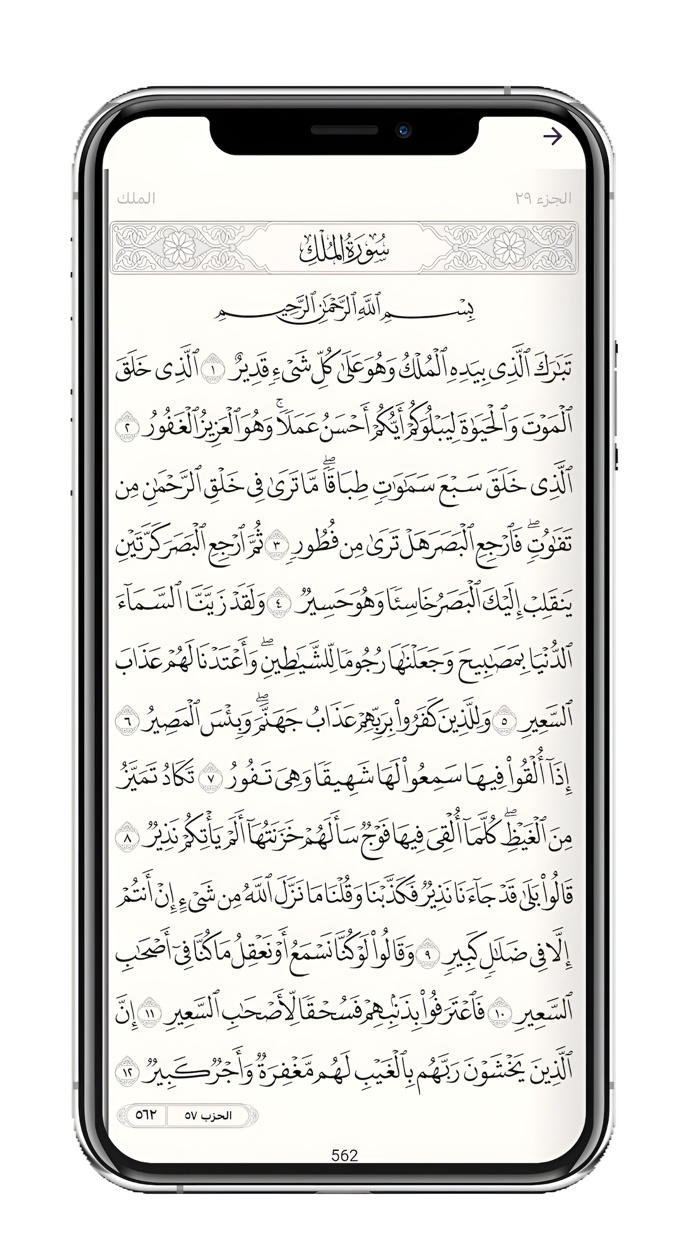 الجزء ٢٩ الملك
سُورَةُ المُلْكِ
بِسْمِ ٱللَّهِ ٱلرَّحْمَٰنِ ٱلرَّحِيمِ
تَبَٰرَكَ ٱلَّذِى بِيَدِهِ ٱلْمُلْكُ وَهُوَ عَلَىٰ كُلِّ شَىْءٍ قَدِيرٌ ١ ٱلَّذِى خَلَقَ
ٱلْمَوْتَ وَٱلْحَيَوٰةَ لِيَبْلُوَكُمْ أَيُّكُمْ أَحْسَنُ عَمَلًا ۚ وَهُوَ ٱلْعَزِيزُ ٱلْغَفُورُ ٢
ٱلَّذِى خَلَقَ سَبْعَ سَمَٰوَٰتٍ طِبَاقًا ۖ مَّا تَرَىٰ فِى خَلْقِ ٱلرَّحْمَٰنِ مِن
تَفَٰوُتٍ ۖ فَٱرْجِعِ ٱلْبَصَرَ هَلْ تَرَىٰ مِن فُطُورٍ ٣ ثُمَّ ٱرْجِعِ ٱلْبَصَرَ كَرَّتَيْنِ
يَنقَلِبْ إِلَيْكَ ٱلْبَصَرُ خَاسِئًا وَهُوَ حَسِيرٌ ٤ وَلَقَدْ زَيَّنَّا ٱلسَّمَآءَ
ٱلدُّنْيَا بِمَصَٰبِيحَ وَجَعَلْنَٰهَا رُجُومًا لِّلشَّيَٰطِينِ ۖ وَأَعْتَدْنَا لَهُمْ عَذَابَ
ٱلسَّعِيرِ ٥ وَلِلَّذِينَ كَفَرُوا۟ بِرَبِّهِمْ عَذَابُ جَهَنَّمَ ۖ وَبِئْسَ ٱلْمَصِيرُ ٦
إِذَآ أُلْقُوا۟ فِيهَا سَمِعُوا۟ لَهَا شَهِيقًا وَهِىَ تَفُورُ ٧ تَكَادُ تَمَيَّزُ
مِنَ ٱلْغَيْظِ ۖ كُلَّمَآ أُلْقِىَ فِيهَا فَوْجٌ سَأَلَهُمْ خَزَنَتُهَآ أَلَمْ يَأْتِكُمْ نَذِيرٌ ٨
قَالُوا۟ بَلَىٰ قَدْ جَآءَنَا نَذِيرٌ فَكَذَّبْنَا وَقُلْنَا مَا نَزَّلَ ٱللَّهُ مِن شَىْءٍ إِنْ أَنتُمْ
إِلَّا فِى ضَلَٰلٍ كَبِيرٍ ٩ وَقَالُوا۟ لَوْ كُنَّا نَسْمَعُ أَوْ نَعْقِلُ مَا كُنَّا فِىٓ أَصْحَٰبِ
ٱلسَّعِيرِ ١٠ فَٱعْتَرَفُوا۟ بِذَنۢبِهِمْ فَسُحْقًا لِّأَصْحَٰبِ ٱلسَّعِيرِ ١١ إِنَّ
ٱلَّذِينَ يَخْشَوْنَ رَبَّهُم بِٱلْغَيْبِ لَهُم مَّغْفِرَةٌ وَأَجْرٌ كَبِيرٌ ١٢
الحزب ٥٧ ٥٦٢
562